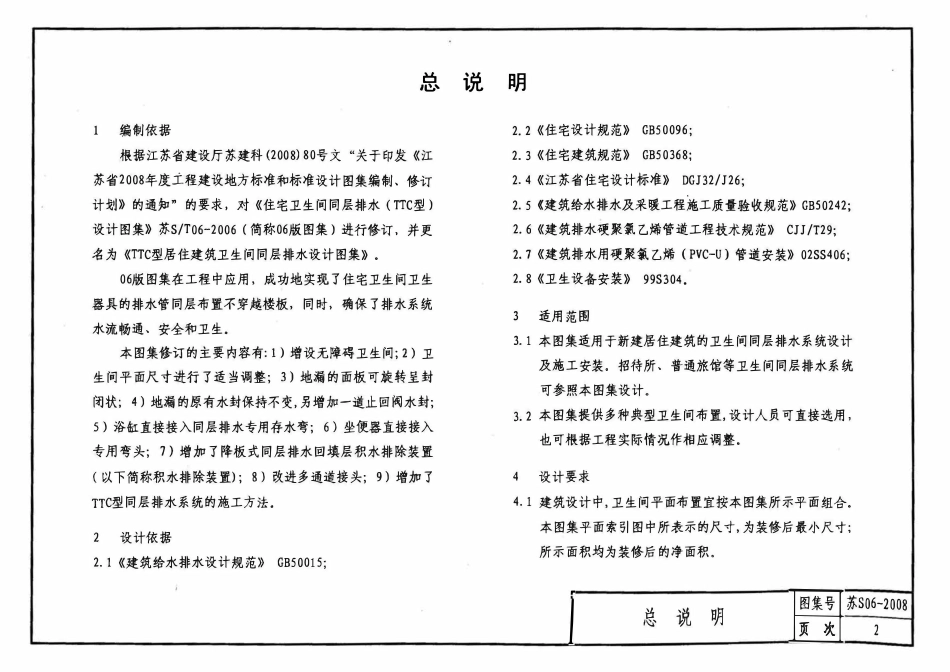 总 说 明
1 编制依据
根据江苏省建设厅苏建科(2008)80号文“关于印发《江
苏省2008年度工程建设地方标准和标准设计图集编制、修订
计划》的通知”的要求，对《住宅卫生间同层排水（TTC型）
设计图集》苏S/T06-2006（简称06版图集）进行修订，并更
名为《TTC型居住建筑卫生间同层排水设计图集》。
06版图集在工程中应用，成功地实现了住宅卫生间卫生
器具的排水管同层布置不穿越楼板，同时，确保了排水系统
水流畅通、安全和卫生。
本图集修订的主要内容有:1）增设无障碍卫生间;2）卫
生间平面尺寸进行了适当调整；3）地漏的面板可旋转呈封
闭状；4）地漏的原有水封保持不变,另增加一道止回阀水封；
5）浴缸直接接入同层排水专用存水弯；6）坐便器直接接入
专用弯头；7）增加了降板式同层排水回填层积水排除装置
(以下简称积水排除装置)；8）改进多通道接头；9）增加了
TTC型同层排水系统的施工方法。
2 设计依据
2.1《建筑给水排水设计规范》 GB50015;
2.2《住宅设计规范》 GB50096;
2.3《住宅建筑规范》 GB50368;
2.4《江苏省住宅设计标准》 DGJ32/J26;
2.5《建筑给水排水及采暖工程施工质量验收规范》GB50242;
2.6《建筑排水硬聚氯乙烯管道工程技术规范》 CJJ/T29;
2.7《建筑排水用硬聚氯乙烯（PVC-U）管道安装》02SS406;
2.8《卫生设备安装》 99S304。
3 适用范围
3.1 本图集适用于新建居住建筑的卫生间同层排水系统设计
及施工安装。招待所、普通旅馆等卫生间同层排水系统
可参照本图集设计。
3.2 本图集提供多种典型卫生间布置,设计人员可直接选用，
也可根据工程实际情况作相应调整。
4 设计要求
4.1 建筑设计中,卫生间平面布置宜按本图集所示平面组合。
本图集平面索引图中所表示的尺寸,为装修后最小尺寸；
所示面积均为装修后的净面积。
总 说 明
图集号 苏S06-2008
页 次 2